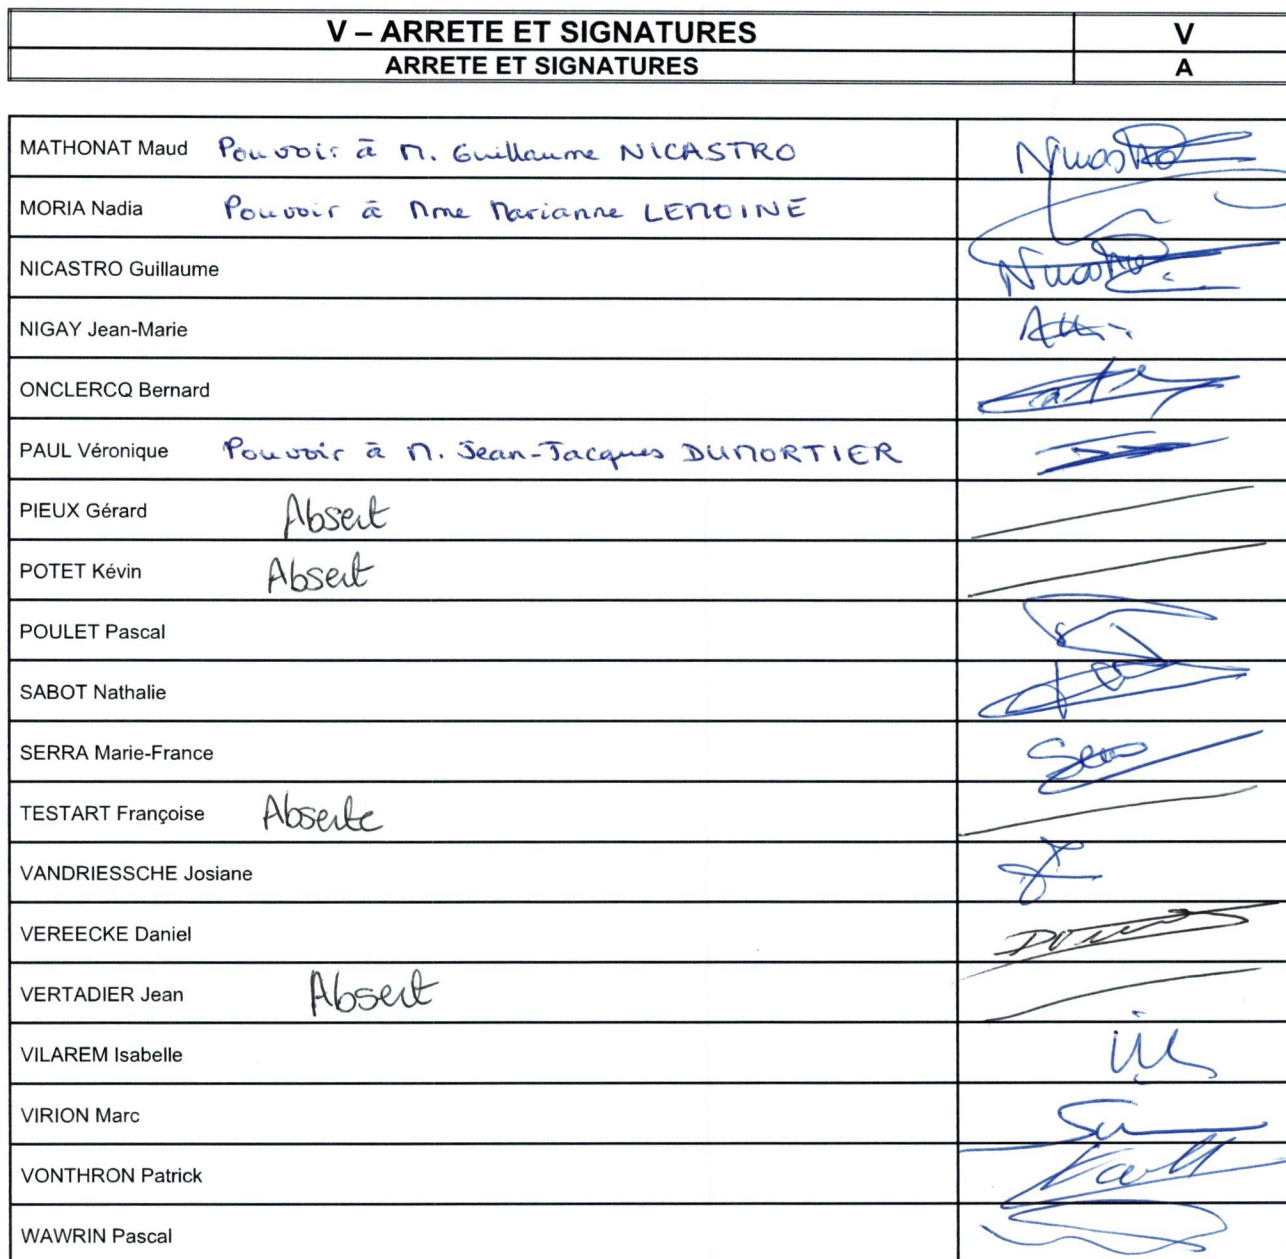 V – ARRETE ET SIGNATURES V
ARRETE ET SIGNATURES A
MATHONAT Maud Pouvoir à M. Guillaume NICASTRO Nicastro
MORIA Nadia Pouvoir à Mme Marianne LEMOINE
NICASTRO Guillaume Nicastro
NIGAY Jean-Marie
ONCLERCQ Bernard
PAUL Véronique Pouvoir à M. Jean-Jacques DUMORTIER
PIEUX Gérard Absent
POTET Kévin Absent
POULET Pascal
SABOT Nathalie
SERRA Marie-France
TESTART Françoise Absente
VANDRIESSCHE Josiane
VEREECKE Daniel
VERTADIER Jean Absent
VILAREM Isabelle
VIRION Marc
VONTHRON Patrick
WAWRIN Pascal